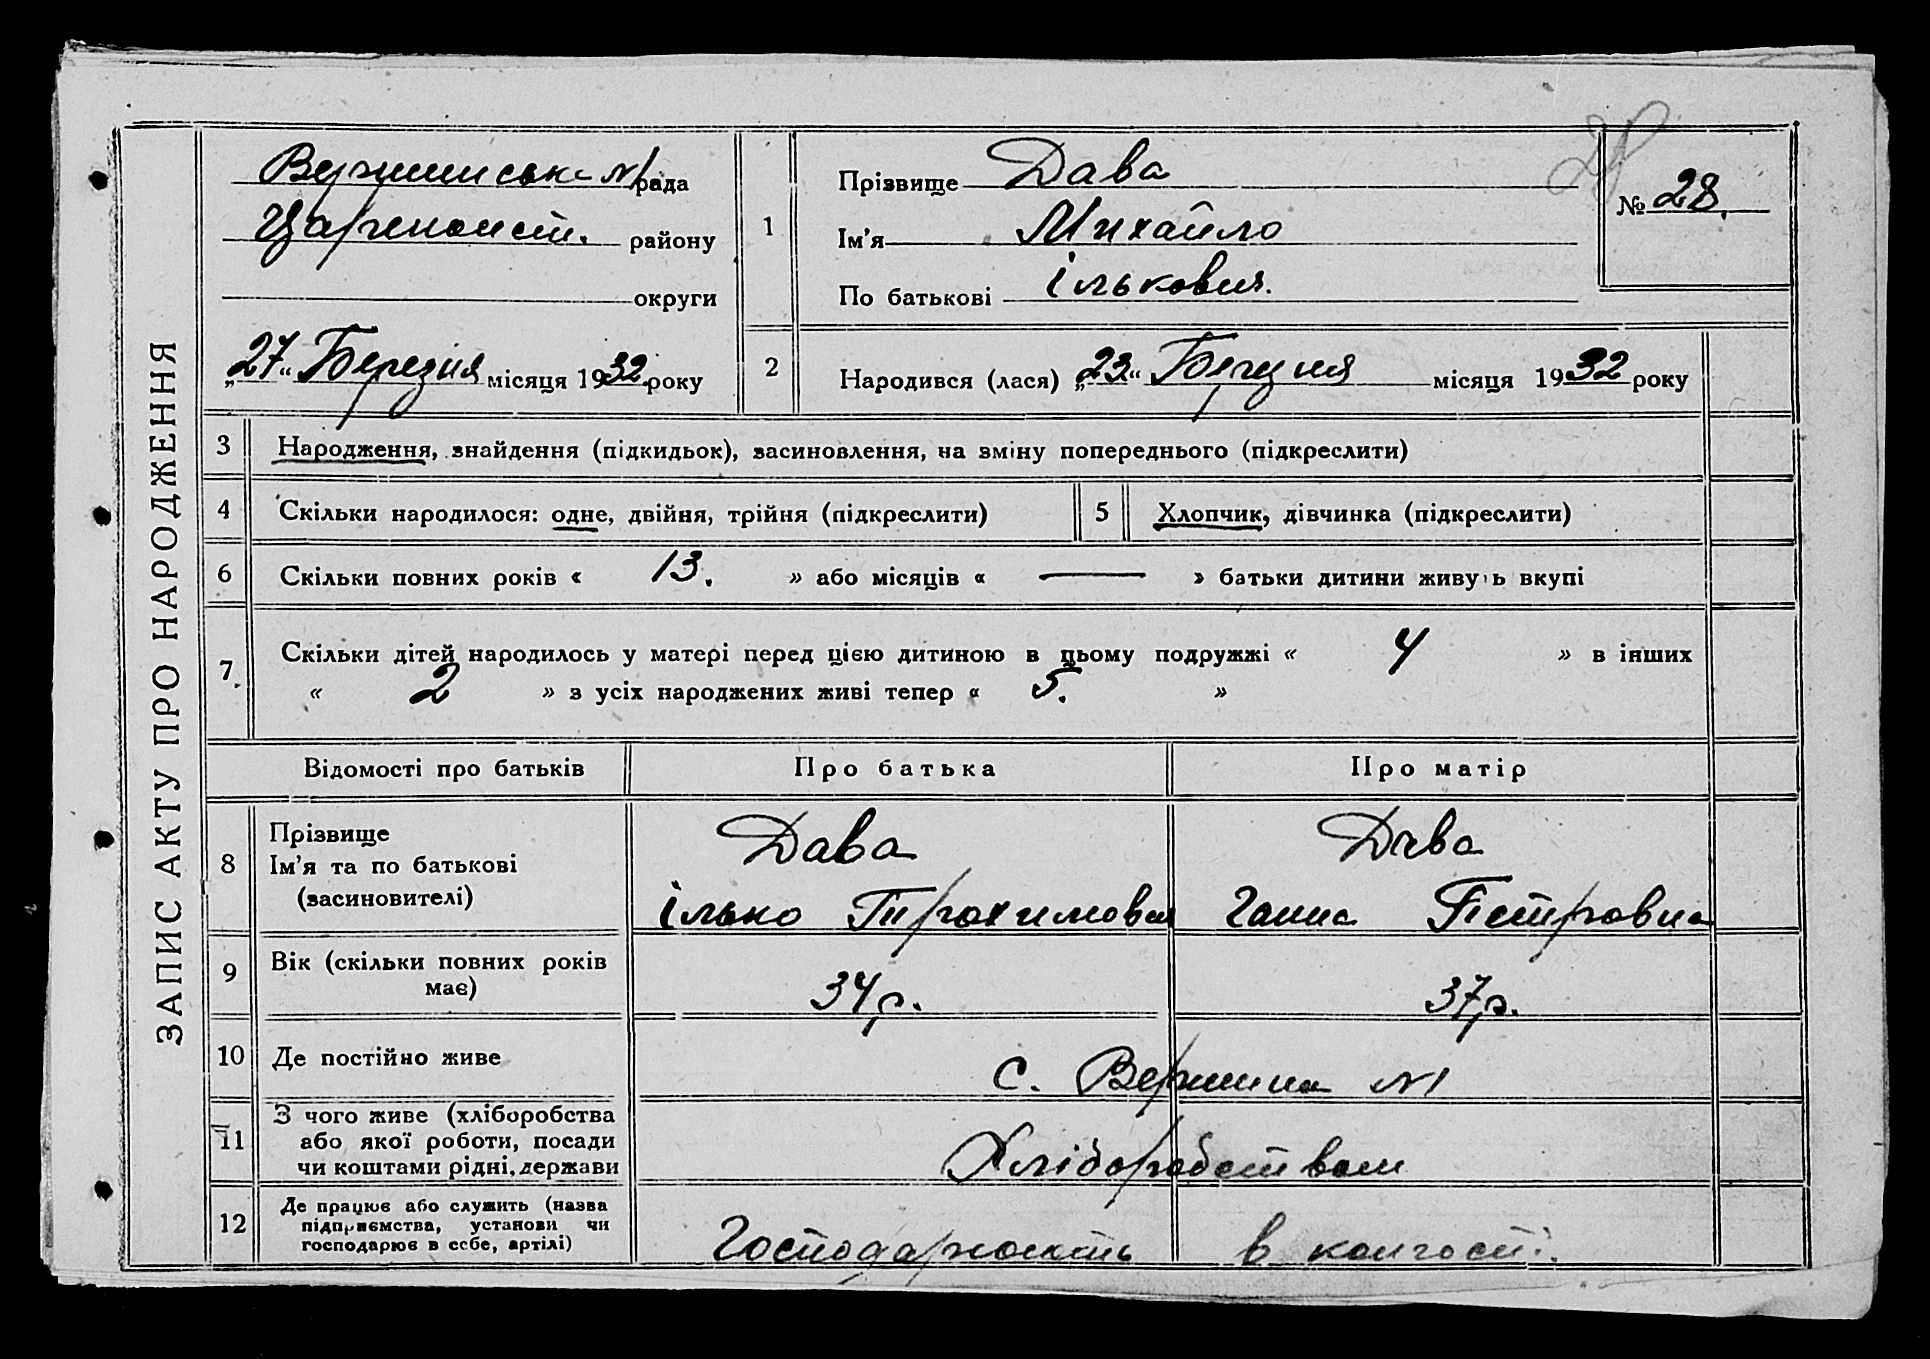 ЗАПИС АКТУ ПРО НАРОДЖЕННЯ
Вершинська №1 рада
району
округи
„27“ Березня місяця 1932 року
1
Прізвище Дава
Ім'я Михайло
По батькові Ількович.
28
№ 28.
2
Народився (лася) „23“ Березня місяця 1932 року
3 Народження, знайдення (підкидьок), засиновлення, на зміну попереднього (підкреслити)
4 Скільки народилося: одне, двійня, трійня (підкреслити)
5 Хлопчик, дівчинка (підкреслити)
6 Скільки повних років « 13. » або місяців « — » батьки дитини живуть вкупі
7 Скільки дітей народилось у матері перед цією дитиною в цьому подружжі « 4 » в інших
« 2 » з усіх народжених живі тепер « 5. »
Відомості про батьків Про батька Про матір
8 Прізвище
Ім'я та по батькові
(засиновителі)
Дава
Ілько Трохимович
Дава
Ганна Петровна
9 Вік (скільки повних років
має)
34 р.
37 р.
10 Де постійно живе
с. Вершина №1
11 З чого живе (хліборобства
або якої роботи, посади
чи коштами рідні, держави
Хліборобством
12 Де працює або служить (назва
підприємства, установи чи
господарює в себе, артілі)
Господарюють в колгоспі.